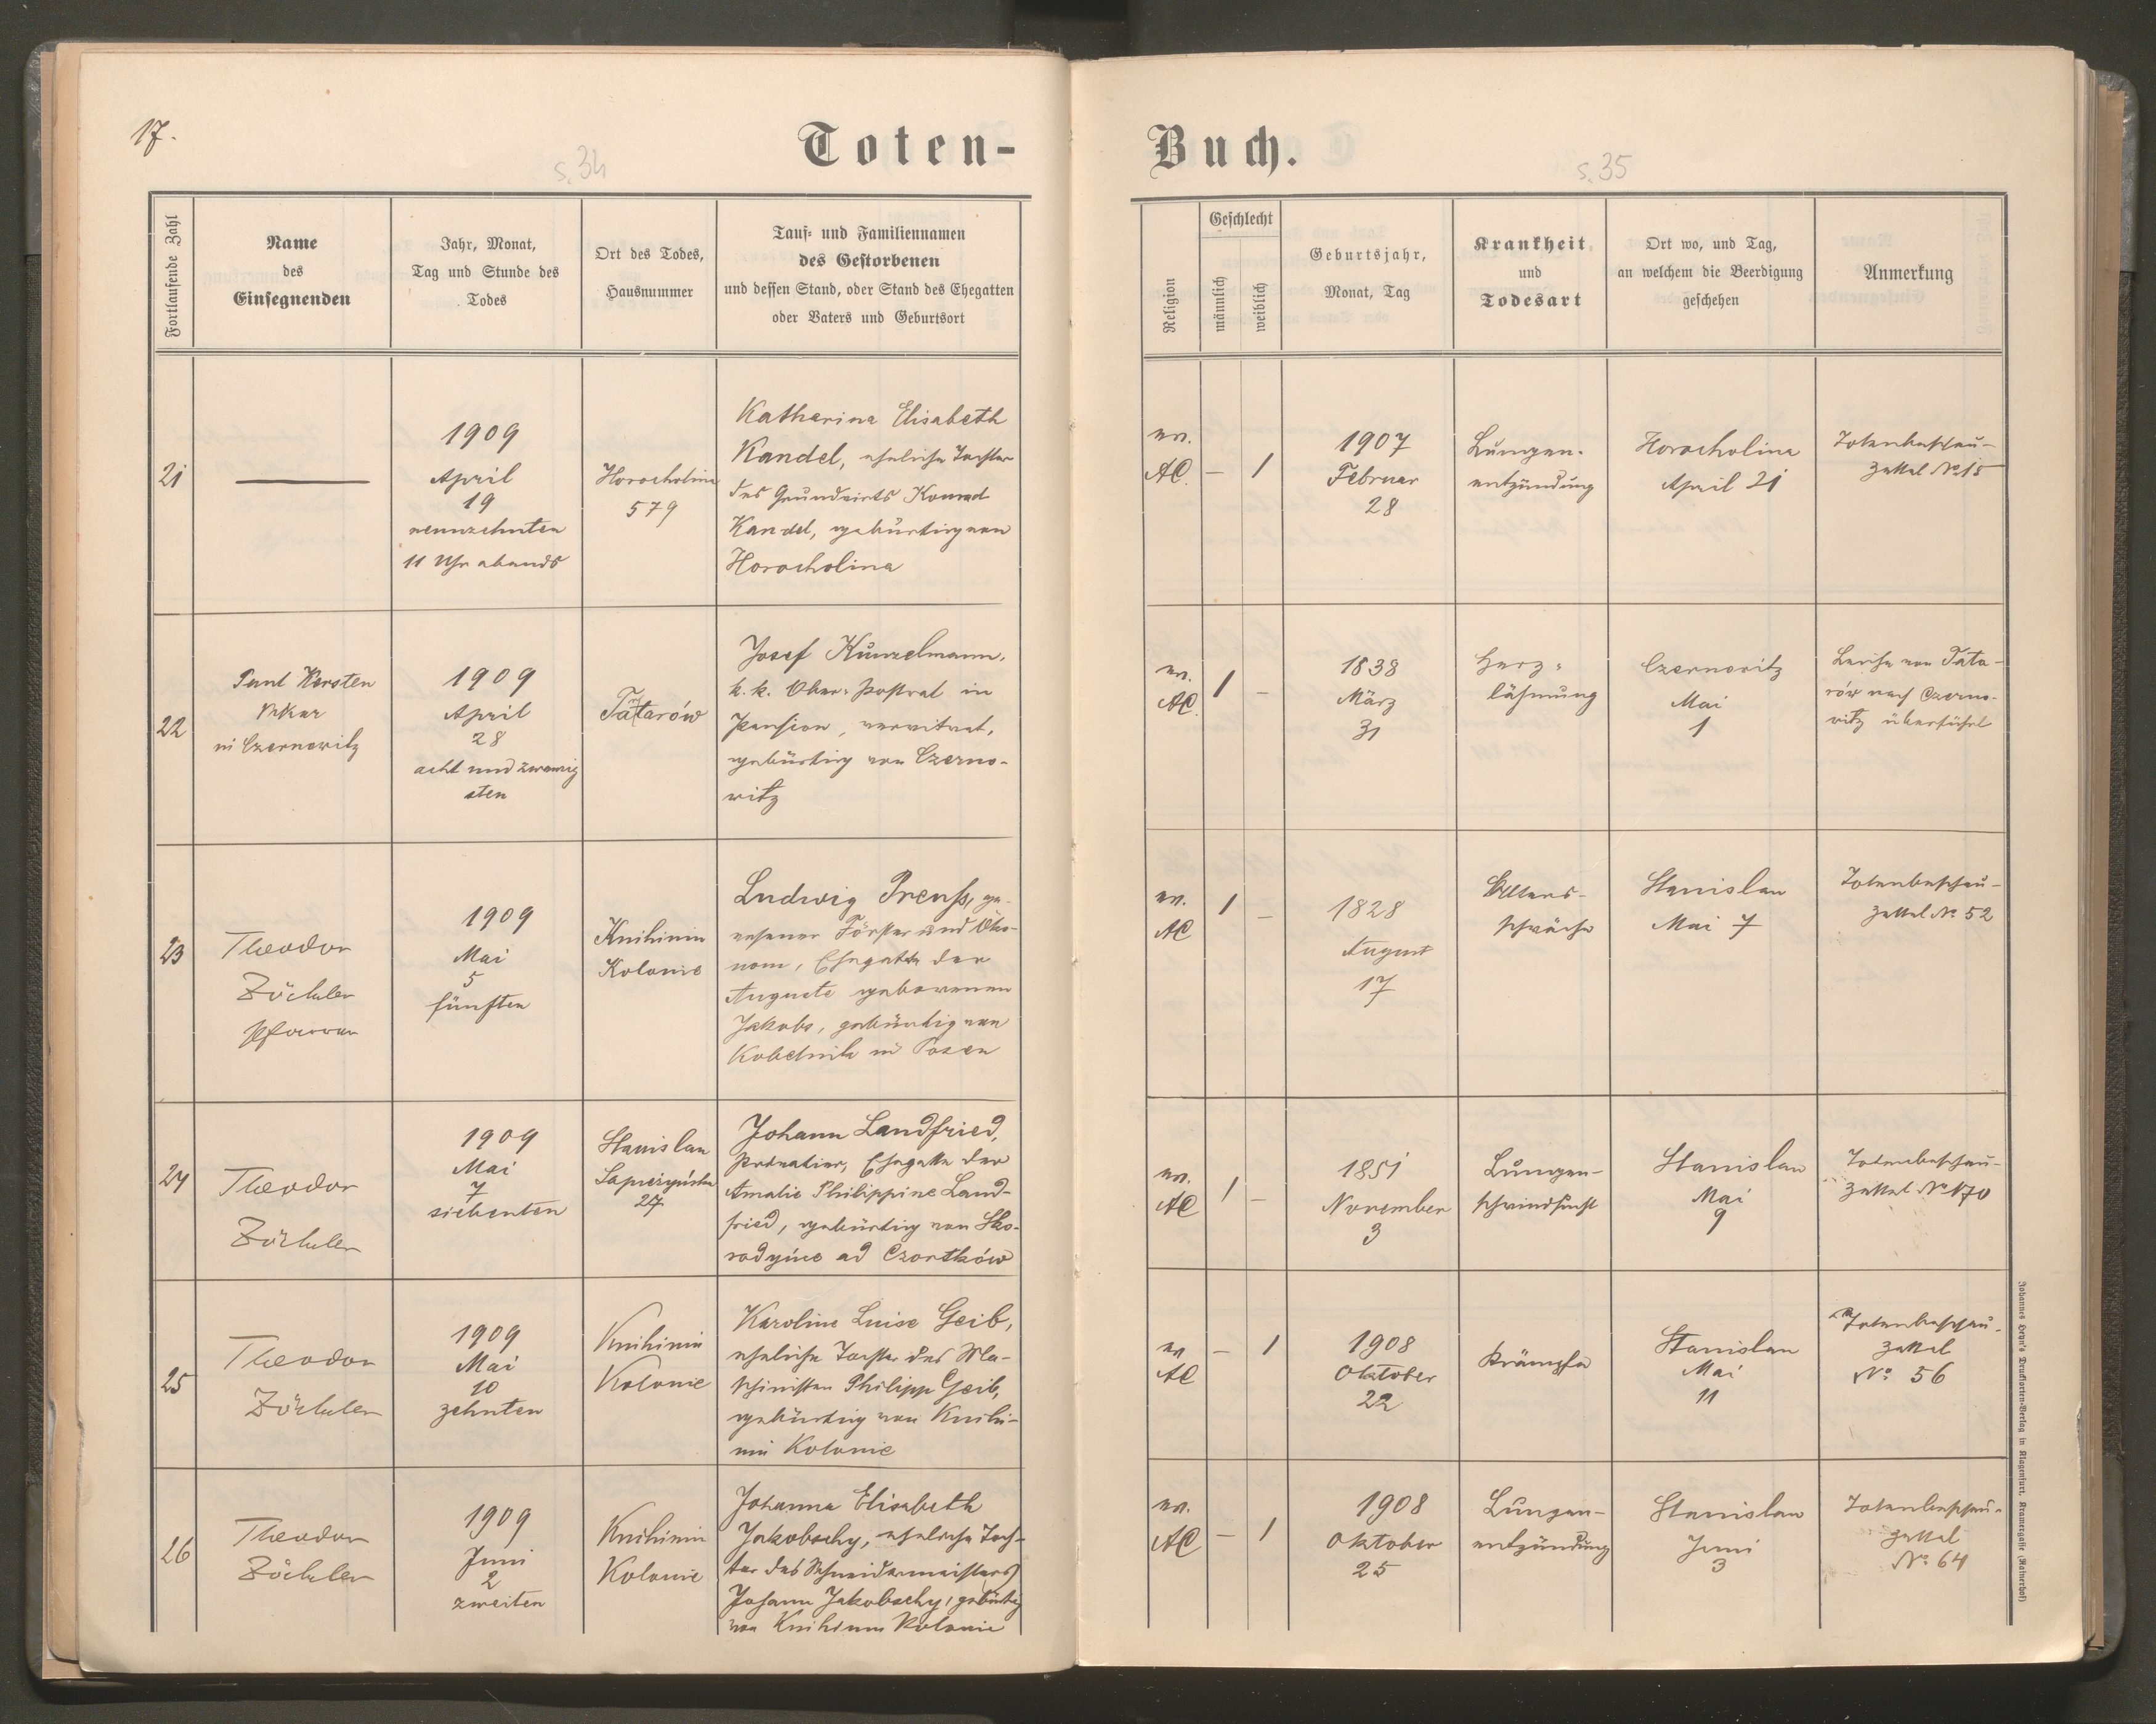 17.
s. 34
Toten-
Fortlaufende Zahl
Name
des
Einsegnenden
Jahr, Monat,
Tag und Stunde des
Todes
Ort des Todes,
Hausnummer
Tauf- und Familiennamen
des Gestorbenen
und dessen Stand, oder Stand des Ehegatten
oder Vaters und Geburtsort
21
1909
April
19
neunzehnten
11 Uhr abends
Horocholina
579
Katharina Elisabeth
Kandel, eheliche Tochter
des Grundwirts Konrad
Kandel, gebürtig von
Horocholina
22
Paul Kersten
Vikar
in Czernowitz
1909
April
28
acht und zwanzig
sten
Tatarów
Josef Kunzelmann,
k. k. Ober-Postrat in
Pension, verwitwet,
gebürtig von Czerno-
witz
23
Theodor
Zöckler
Pfarrer
1909
Mai
5
fünften
Knihinin
Kolonie
Ludwig Preuß, ge-
wesener Förster und Öko-
nom, Ehegatte der
Auguste geborenen
Jakobs, gebürtig von
Kobelnik in Posen
24
Theodor
Zöckler
1909
Mai
7
siebenten
Stanislau
Sapieżyńska
27
Johann Landfried,
Privatier, Ehegatte der
Amalie Philippine Land-
fried, gebürtig von Sko-
rodyńce ad Czortków
25
Theodor
Zöckler
1909
Mai
10
zehnten
Knihinin
Kolonie
Karoline Luise Geib,
eheliche Tochter des Ma-
schinisten Philipp Geib,
gebürtig von Knihi-
nin Kolonie
26
Theodor
Zöckler
1909
Juni
2
zweiten
Knihinin
Kolonie
Johanna Elisabeth
Jakobschy, eheliche Toch-
ter des Schneidermeisters
Johann Jakobschy, gebürtig
von Knihinin Kolonie
Buch.
s. 35
Religion
Geschlecht
männlich
weiblich
Geburtsjahr,
Monat, Tag
Krankheit
und
Todesart
Ort wo, und Tag,
an welchem die Beerdigung
geschehen
Anmerkung
ev.
AC. – 1
1907
Februar
28
Lungen-
entzündung
Horocholina
April 21
Totenbeschau-
Zettel No 15
ev.
AC. 1 –
1838
März
31
Herz-
lähmung
Czernowitz
Mai
1
Leiche von Tata-
rów nach Czerno-
witz überführt
ev.
AC 1 –
1828
August
17
Alters-
schwäche
Stanislau
Mai 7
Totenbeschau-
Zettel No 52
ev.
AC 1 –
1851
November
3
Lungen-
schwindsucht
Stanislau
Mai
9
Totenbeschau-
Zettel No 170
ev
AC – 1
1908
Oktober
22
Krämpfe
Stanislau
Mai
11
Totenbeschau-
Zettel
No 56
ev.
AC – 1
1908
Oktober
25
Lungen-
entzündung
Stanislau
Juni
3
Totenbeschau-
zettel
No 64
Johannes Heyn's Drucksorten-Verlag in Klagenfurt, Kramergasse (Rainerhof)